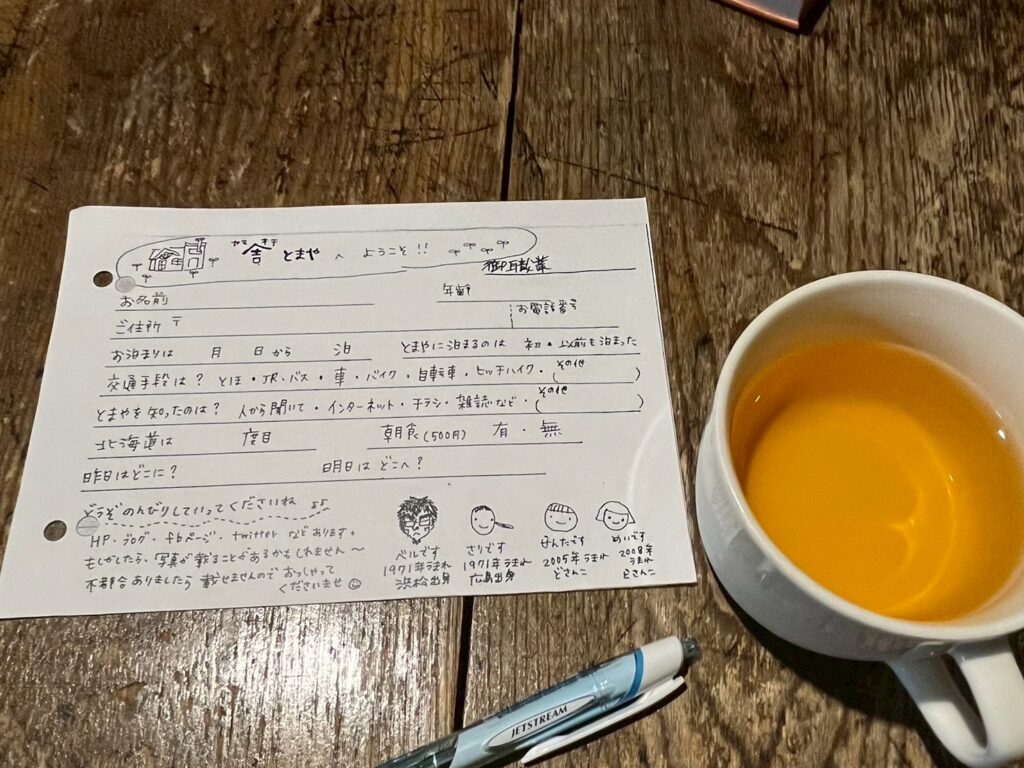 舎 とまや へ ようこそ!!
御職業
お名前 年齢
ご住所 〒 お電話番号
お泊まりは 月 日から 泊 とまやに泊まるのは 初・以前も泊まった
交通手段は? とほ・JR・バス・車・バイク・自転車・ヒッチハイク・(その他 )
とまやを知ったのは? 人から聞いて・インターネット・チラシ・雑誌など・(その他 )
北海道は 度目 朝食(500円) 有・無
昨日はどこに? 明日はどこへ?
どうぞのんびりしていってくださいね
HP・ブログ・fbページ・twitterなどあります。
もしかしたら、写真が載ることがあるかもしれません〜
不都合ありましたら載せませんのでおっしゃって
くださいませ
べルです
1971年うまれ
浜松出身
さりです
1971年うまれ
広島出身
かんたです
2005年うまれ
どさんこ
めいです
2008年
うまれ
どさんこ
JETSTREAM